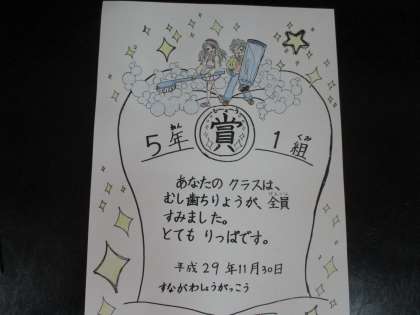 しょう
賞
5年 1組
ねん くみ
あなたの クラスは、
むし歯ちりょうが、全員
ぜんいん
すみました。
とても りっぱです。
平成29年11月30日
すながわしょうがっこう